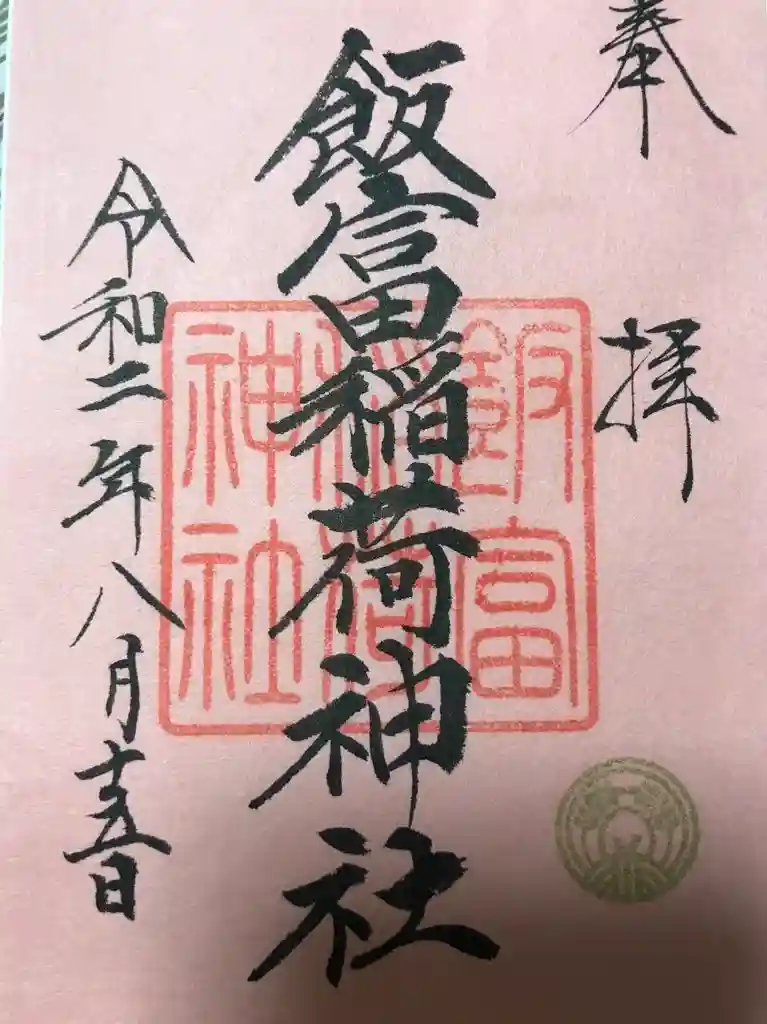 奉拝
飯富稲荷神社
令和二年八月十五日
飯富
稲荷
神社